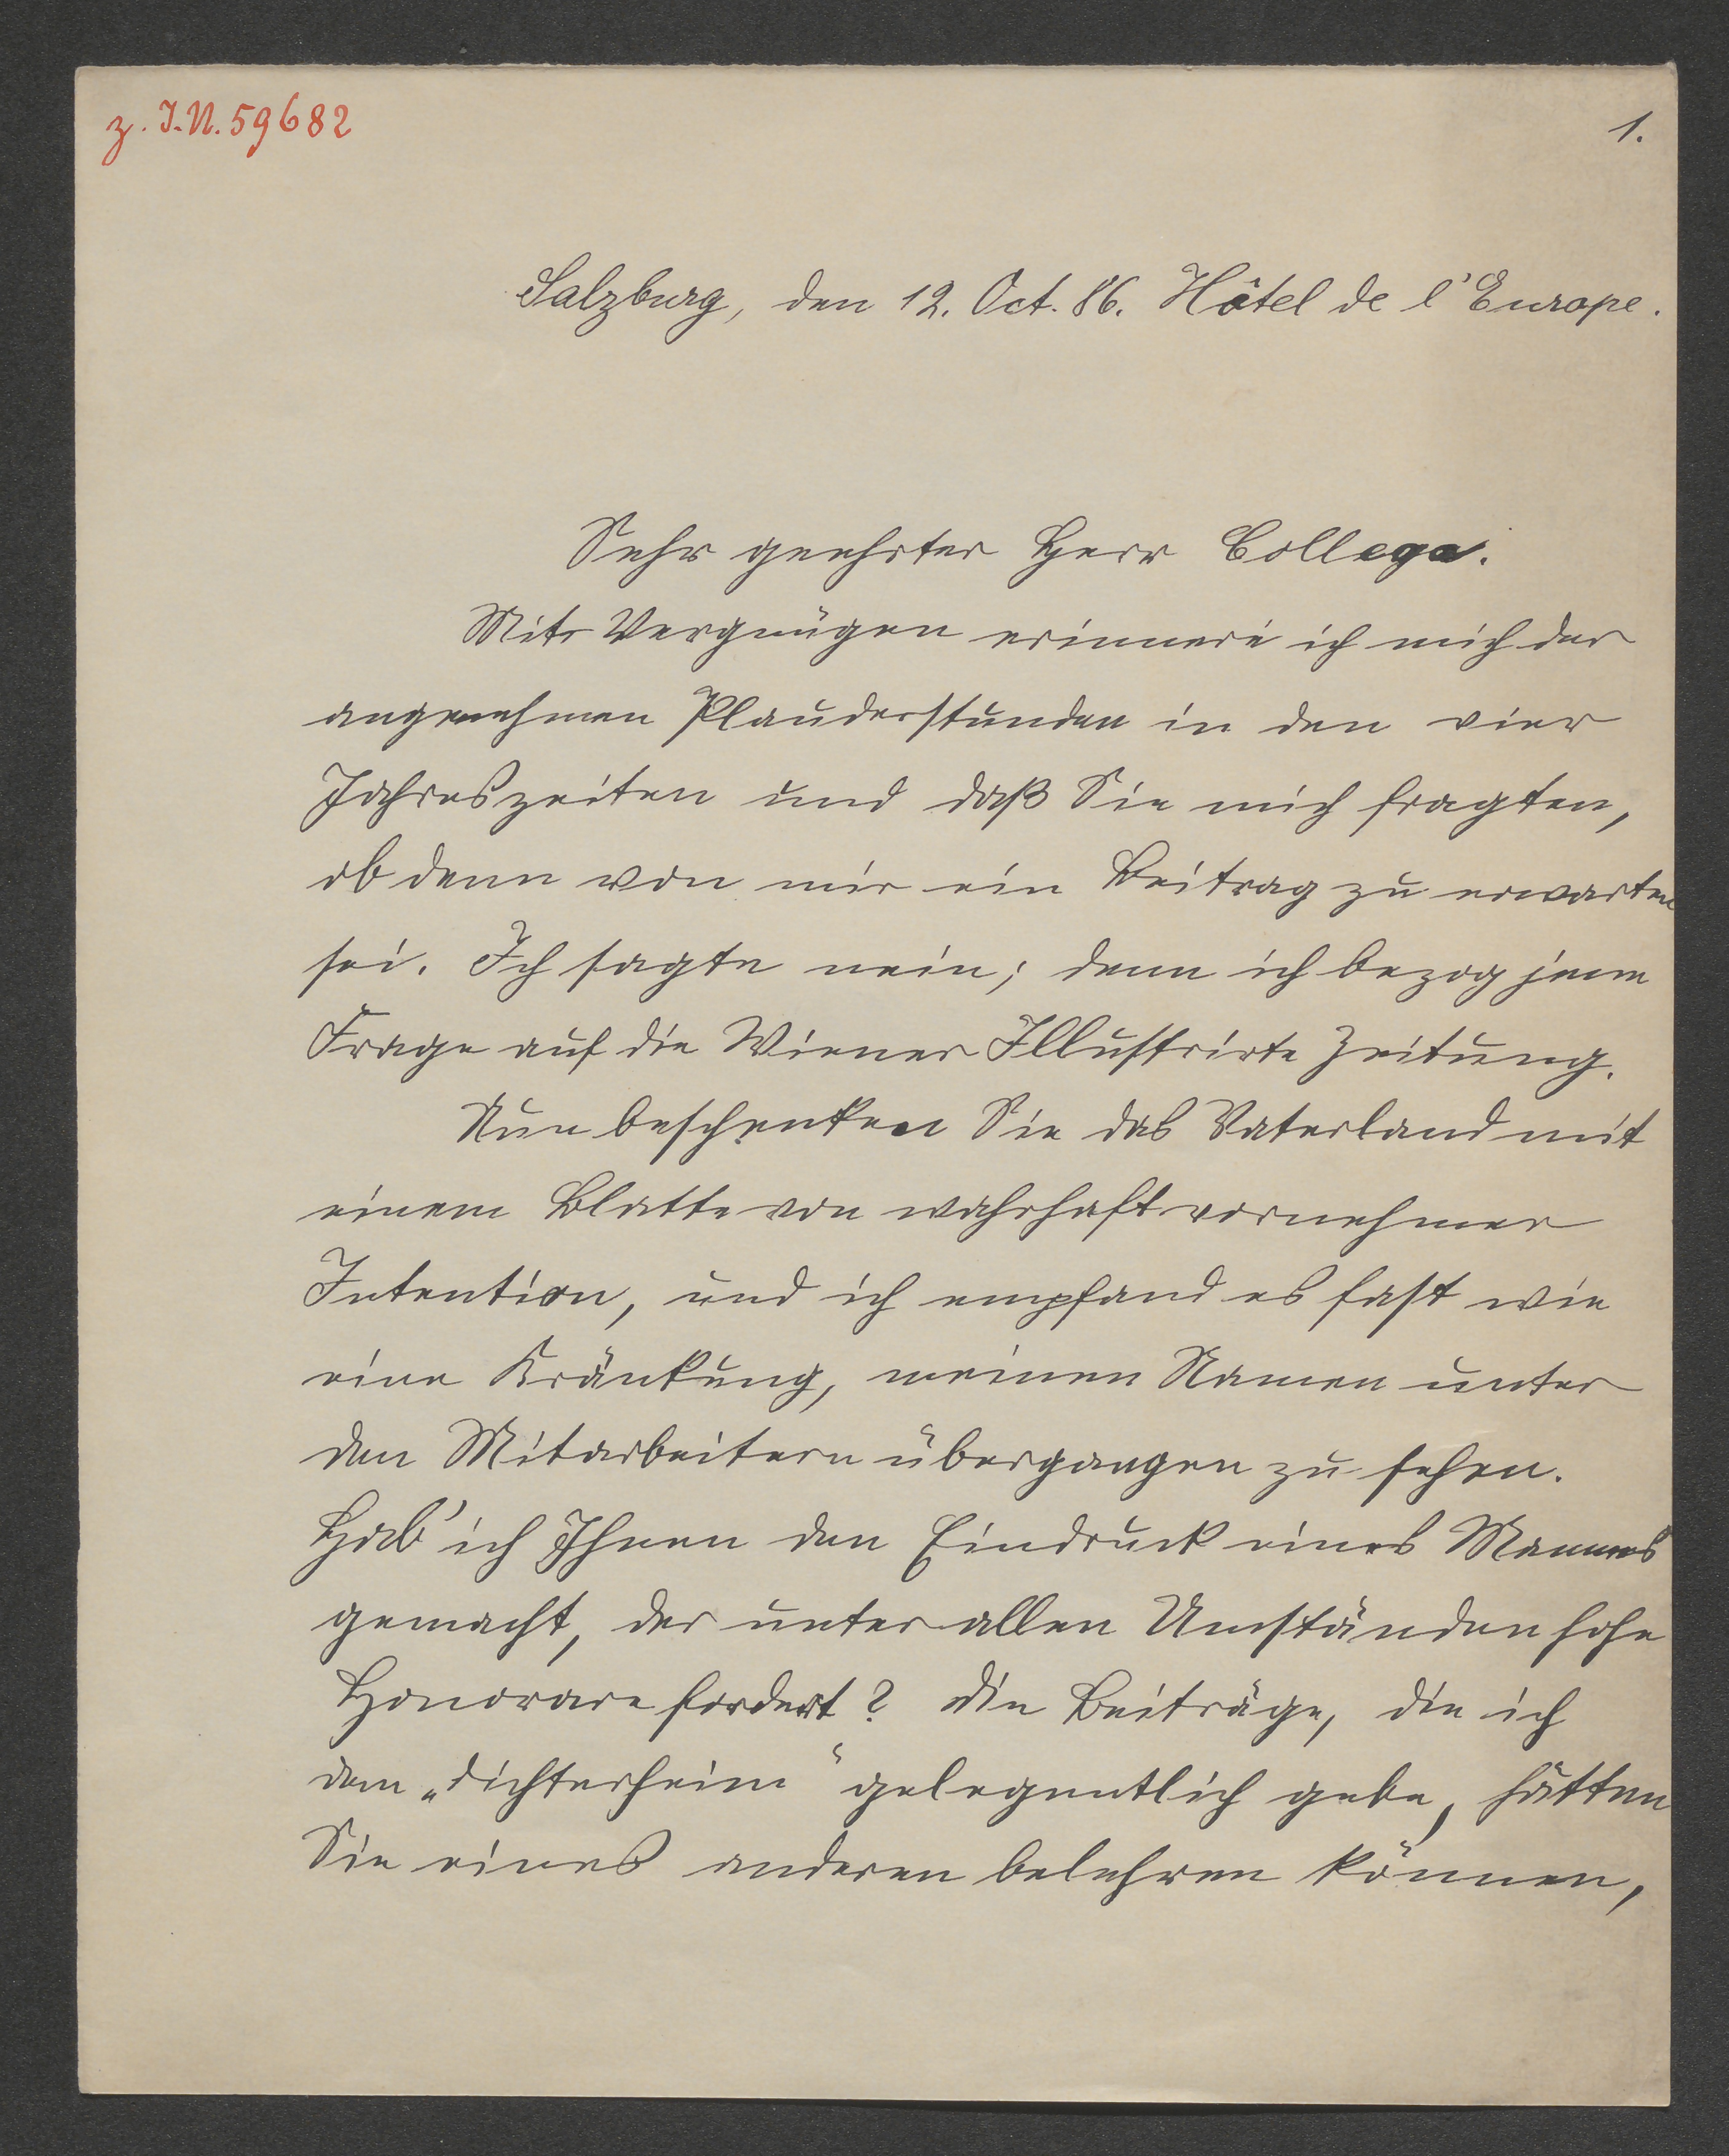 z. I.N. 59682
1.
Salzburg, den 12. Oct. 86. Hôtel de l'Europe.
Sehr geehrter Herr College.
Mit Vergnügen erinnere ich mich der
angenehmen Plauderstunden in den vier
Jahreszeiten und daß Sie mich fragten,
ob denn von mir ein Beitrag zu erwarten
sei. Ich sagte nein; denn ich bezog jene
Frage auf die Wiener Illustrirte Zeitung.
Nun beschenken Sie das Vaterland mit
einem Blatte von wahrhaft vornehmer
Intention, und ich empfand es fast wie
eine Kränkung, meinen Namen unter
den Mitarbeitern übergangen zu sehen.
Hab' ich Ihnen den Eindruck eines Mannes
gemacht, der unter allen Umständen hohe
Honorare fordert? Die Beiträge, die ich
dem „Dichterheim“ gelegentlich gebe, hätten
Sie eines anderen belehren können,